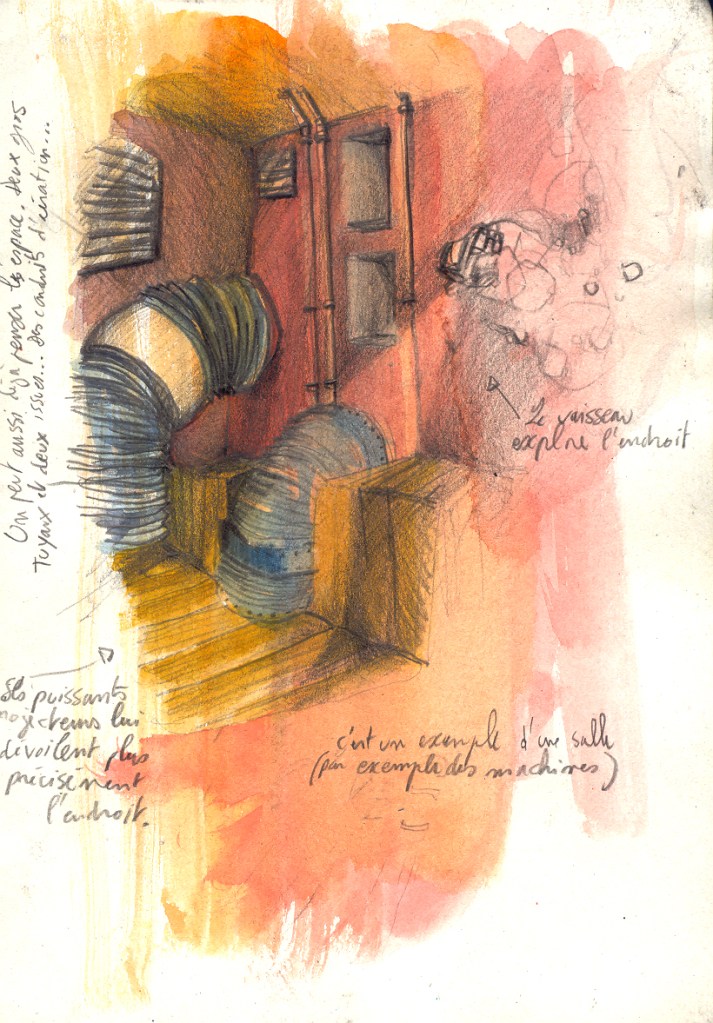 On peut aussi déjà penser les espace. deux gros
tuyaux et deux issues... des conduits d'aération...
Le vaisseau
explore l'endroit
Ses puissants
projecteurs lui
dévoilent plus
précisément
l'endroit.
c'est un exemple d'une salle
(par exemple des machines)